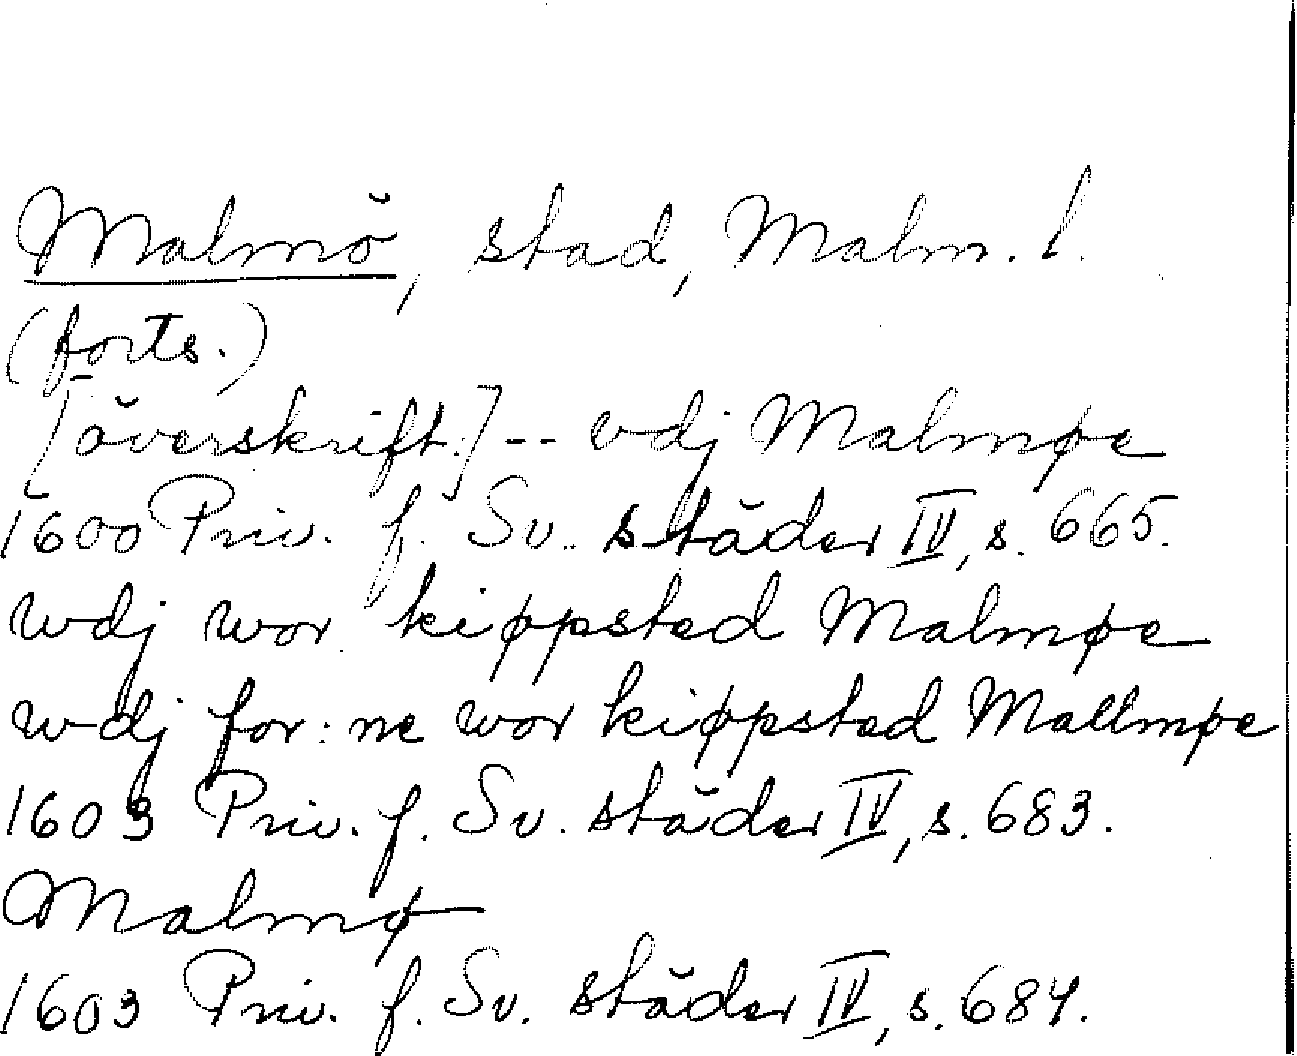 Malmö, stad, Malm. l.
(forts.)
[överskrift:] -- vdj Malmøe
1600 Priv. f. Sv. städer IV, s. 665.
wdj wor kiøpsted Malmøe
wdj for:ne wor kiøpsted Mallmøe
1603 Priv. f. Sv. städer IV, s. 683.
Malmø
1603 Priv. f. Sv. städer IV, s. 684.